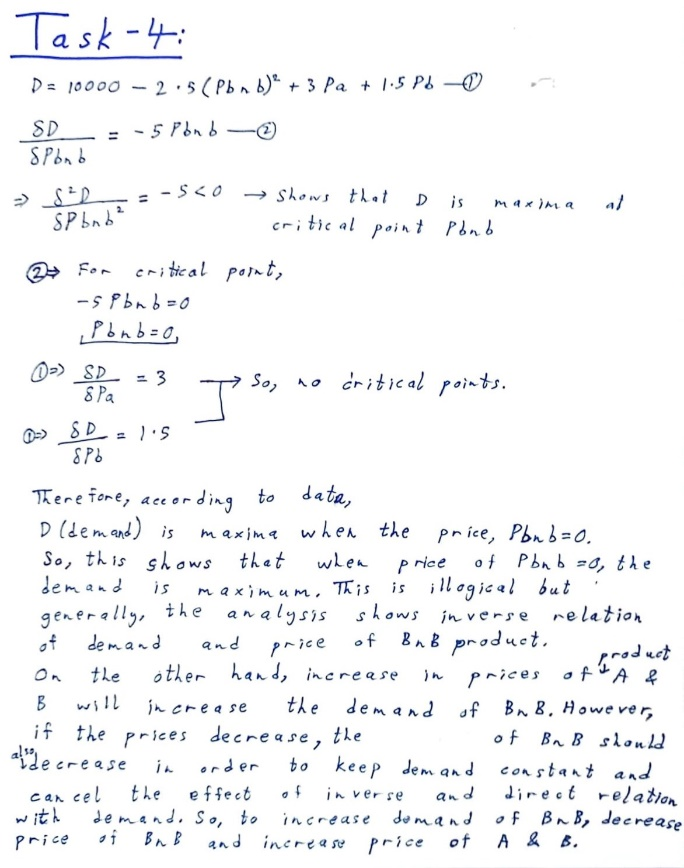 Task-4:
D = 10000 - 2.5 (Pbnb)² + 3 Pa + 1.5 Pb —①
δD/δPbnb = -5 Pbnb —②
⇒ δ²D/δPbnb² = -5 < 0 → Shows that D is maxima at
critical point Pbnb
②⇒ For critical point,
-5 Pbnb = 0
Pbnb = 0,
①⇒ δD/δPa = 3 → So, no critical points.
①⇒ δD/δPb = 1.5
Therefore, according to data,
D (demand) is maxima when the price, Pbnb=0.
So, this shows that when price of Pbnb =0, the
demand is maximum. This is illogical but
generally, the analysis shows inverse relation
of demand and price of BnB product.
On the other hand, increase in prices of product A &
B will increase the demand of BnB. However,
if the prices decrease, the of BnB should
also decrease in order to keep demand constant and
cancel the effect of inverse and direct relation
with demand. So, to increase demand of BnB, decrease
price of BnB and increase price of A & B.